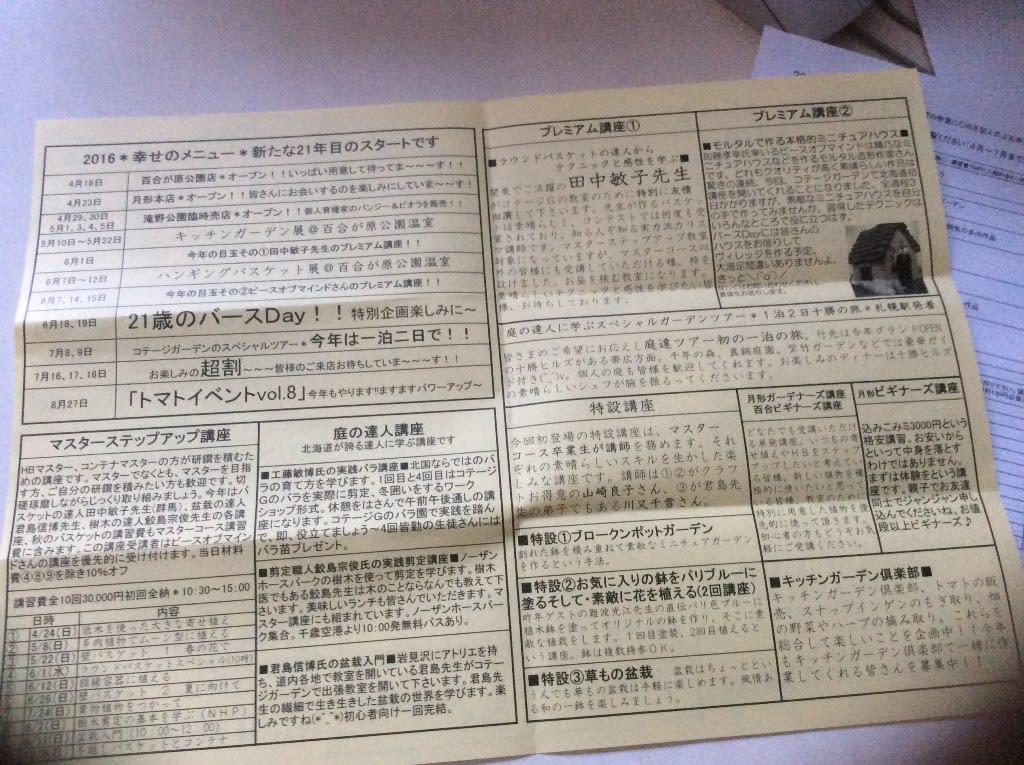 2016＊幸せのメニュー＊新たな21年目のスタートです
4月16日 百合が原公園店＊オープン！！いっぱい用意して待ってま～～～す！！
4月23日 月形本店＊オープン！！皆さんにお会いするのを楽しみにしていま～す！
4月29、30日
5月1、3、4、5日 滝野公園臨時売店＊オープン！！個人育種家のパンジー&ビオラを販売！！
5月10日～5月22日 キッチンガーデン展＠百合が原公園温室
6月1日 今年の目玉その①田中敏子先生のプレミアム講座！！
6月7日～12日 ハンギングバスケット展＠百合が原公園温室
6月7、14、15日 今年の目玉その②ピースオブマインドさんのプレミアム講座！！
6月18、19日 21歳のバースDay！！特別企画楽しみに～
7月8、9日 コテージガーデンのスペシャルツアー＊今年は一泊二日で！！
7月16、17、18日 お楽しみの超割～～～皆様のご来店お待ちしていま～～～す！！
8月27日 「トマトイベントvol.8」今年もやります!!ますますパワーアップ～
マスターステップアップ講座
HBマスター、コンテナマスターの方が研鑽を積むた
めの講座です。マスターでなくとも、マスターを目指
す方、ご自分の研鑽を積みたい方も歓迎です。切
磋琢磨しながらじっくり取り組みましょう。今年はバ
スケットの達人田中敏子先生(群馬)、盆栽の達人
君島信博先生、樹木の達人鮫島宗俊先生の各講
座、秋のバスケットの講習費もマスターコース講習
費に含みます。この講座受講者はピースオブマイン
ドさんの講座を優先的に受け付けます。当日材料
費④⑧⑨を除き10%オフ
講習費全10回30,000円初回全納＊10：30～15：00
日時 内容
① 4/24(日) 低木を使った大きな寄せ植え
2 5/8(日) 葉物植物でムーン型に植える
3 5/22(日) 壁バスケット 1 春の花で
4 6/1(水) ラウンドバスケットスペシャル(10時)
5 6/12(日)
6/26(日) 壁バスケット 2 夏に向けて
7/24(日) 葉物植物をつかって
樹木剪定の基本を学ぶ(NHP)
盆栽入門(10：00～12：00)
バスケットとコンテナ
庭の達人講座
北海道が誇る達人に学ぶ講座です
■工藤敏博氏の実践バラ講座■北国ならではのバ
ラの育て方を学びます。1回目と4回目はコテージ
Gのバラを実際に剪定、冬囲いをするワーク
ショップ形式。休憩をはさんで午前午後通しの講
座になります。コテージGのバラ園で実践を踏ん
で、即、役立てましょう～4回皆勤の生徒さんには
バラ苗プレゼント。
■剪定職人鮫島宗俊氏の実践剪定講座■ノーザン
ホースパークの樹木を使って剪定を学びます。樹木
医でもある鮫島先生は木のことならなんでも教えて下
さいます。美味しいランチも皆さんでいただきます。マ
スター講座にも組まれています。ノーザンホースパー
ク集合。千歳空港より10：00発無料バスあり。
■君島信博氏の盆栽入門■岩見沢にアトリエを持
ち、道内各地で教室を開いている君島先生がコテー
ジガーデンで出張教室を開いて下さいます。君島先
生の繊細で生き生きした盆栽の世界を学びます。楽
しみですね(*^_^*)初心者向け一回完結。
プレミアム講座①
■ラウンドバスケットの達人から
テクニックと感性を学ぶ■
関東でご活躍の田中敏子先生
がコテージGの教室のために特別に友情
出演して下さいます。先生が作るバスケッ
トは素晴らしく、コンテストでは何度も受
賞されており、知る人ぞ知る実力派カリス
マ講師です。マスターステップアップ教室
対象になっていますが、マスターコース以
外の皆様にも受講していただける様、枠を
設けました。お昼を挟む教室になります。
素晴らしいテクニックと感性を学びたい皆
様、お待ちしております。
プレミアム講座②
■モルタルで作る本格的ミニチュアハウス■
加藤孝幸氏率いるピースオブマインドは精巧なミ
ニチュアハウスなどを作るモルタル造形作家さん
です。どれもクオリティが高く素晴らしい作品は
驚きの連続。今回、コテージガーデンで北海道初
講座を開いてくれることになりました。全過程3
日かかりますが、素敵なミニチュアハウスを自分
の手で作ってみませんか。習得したテクニックは
いろんなところで役に立つはず。
バースDayには皆さんの
ハウスをお借りして
ヴィレッジを作る予定。
大満足間違いありませんよ。
きっと＼(^o^)／
庭の達人に学ぶスペシャルガーデンツアー＊1泊2日十勝の旅＊札幌駅発着
皆さまのご希望にお応えし庭達ツアー初の一泊の旅。行先は今年グランドOPEN
の十勝ヒルズがある帯広方面。千年の森、真鍋庭園、紫竹ガーデンなどでは豪華ガイ
ド付き(￣ー￣)v。個人の庭も皆様を歓迎してくれます。お楽しみのディナーは十勝ヒルズ
の素晴らしいシェフが腕を振るってくださいます。
特設講座
今回初登場の特設講座は、マスターコ
ース卒業生が講師を務めます。それ
ぞれの素晴らしいスキルを生かした楽
しみな講座です。講師は①②がクラフ
トお得意の山崎良子さん。③が君島先
生の弟子でもある川又千雪さん。
■特設①ブロークンポットガーデン
割れた鉢を積み重ねて素敵なミニチュアガーデン
を作るという手法。
■特設②お気に入りの鉢をパリブルーに
塗るそして・素敵に花を植える(2回講座)
昨年ゲストの難波光江先生の直伝パリ色ブルーに
植木鉢を塗ってオリジナルの鉢を作り、そこに素
敵な植栽をします。1回目塗装、2回目植えると
いう講座。鉢は複数持参OK。
■特設③草もの盆栽 盆栽はちょっとと
いう人でも草もの盆栽は手軽に楽しめます。風情あ
る和の一鉢を楽しみましょう。
月形ガーデナーズ講座
百合ビギナーズ講座
どなたでも受講いただけ
る単発講座。いつもの寄
せ植えやHBをステップ
アップしたいと考えてい
る皆様、新しい植物を積
極的に使いたいと思って
いる皆様。教室のために
特別に用意した植物を優
先的に使って頂きます。
初心者の方もどうぞお気
軽にご受講ください。
月形ビギナーズ講座
込みこみミ3000円という
格安講習。お安いから
といって中身を落とす
わけではありません。
まずは体験をという講
座です。親子でお友達
同士でジャンジャン申し
込んでくださいね。お値
段以上ビギナーズ♪
■キッチンガーデン倶楽部■
キッチンガーデン倶楽部、トマトの販
売、スナップインゲンのもぎ取り、畑
の野菜やハーブの摘み取り。これらを
総合して楽しいことを企画中！！今年
もキッチンガーデン倶楽部で一緒に作
業してくれる皆さんを募集中！！